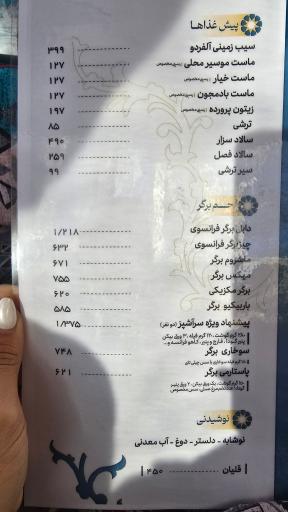 پیش غذاها
سیب زمینی آلفردو ۳۹۹
ماست موسیر محلی ۱۲۷
ماست خیار ۱۲۷
ماست بادمجون ۱۲۷
زیتون پرورده ۱۹۷
ترشی ۸۵
سالاد سزار ۴۹۰
سالاد فصل ۲۵۹
سیر ترشی ۹۹
برگر
دابل برگر فرانسوی ۱/۲۱۸
چیز برگر فرانسوی ۶۳۲
ماشروم برگر ۶۷۱
میکس برگر ۷۵۵
برگر مکزیکی ۶۲۰
باربیکیو برگر ۵۸۵
پیشنهاد ویژه سرآشپز (دو نفر) ۱/۳۷۵
سوخاری برگر ۷۴۸
پاسترامی برگر ۶۲۱
نوشیدنی
نوشابه - دلستر - دوغ - آب معدنی
قلیان ۴۵۰